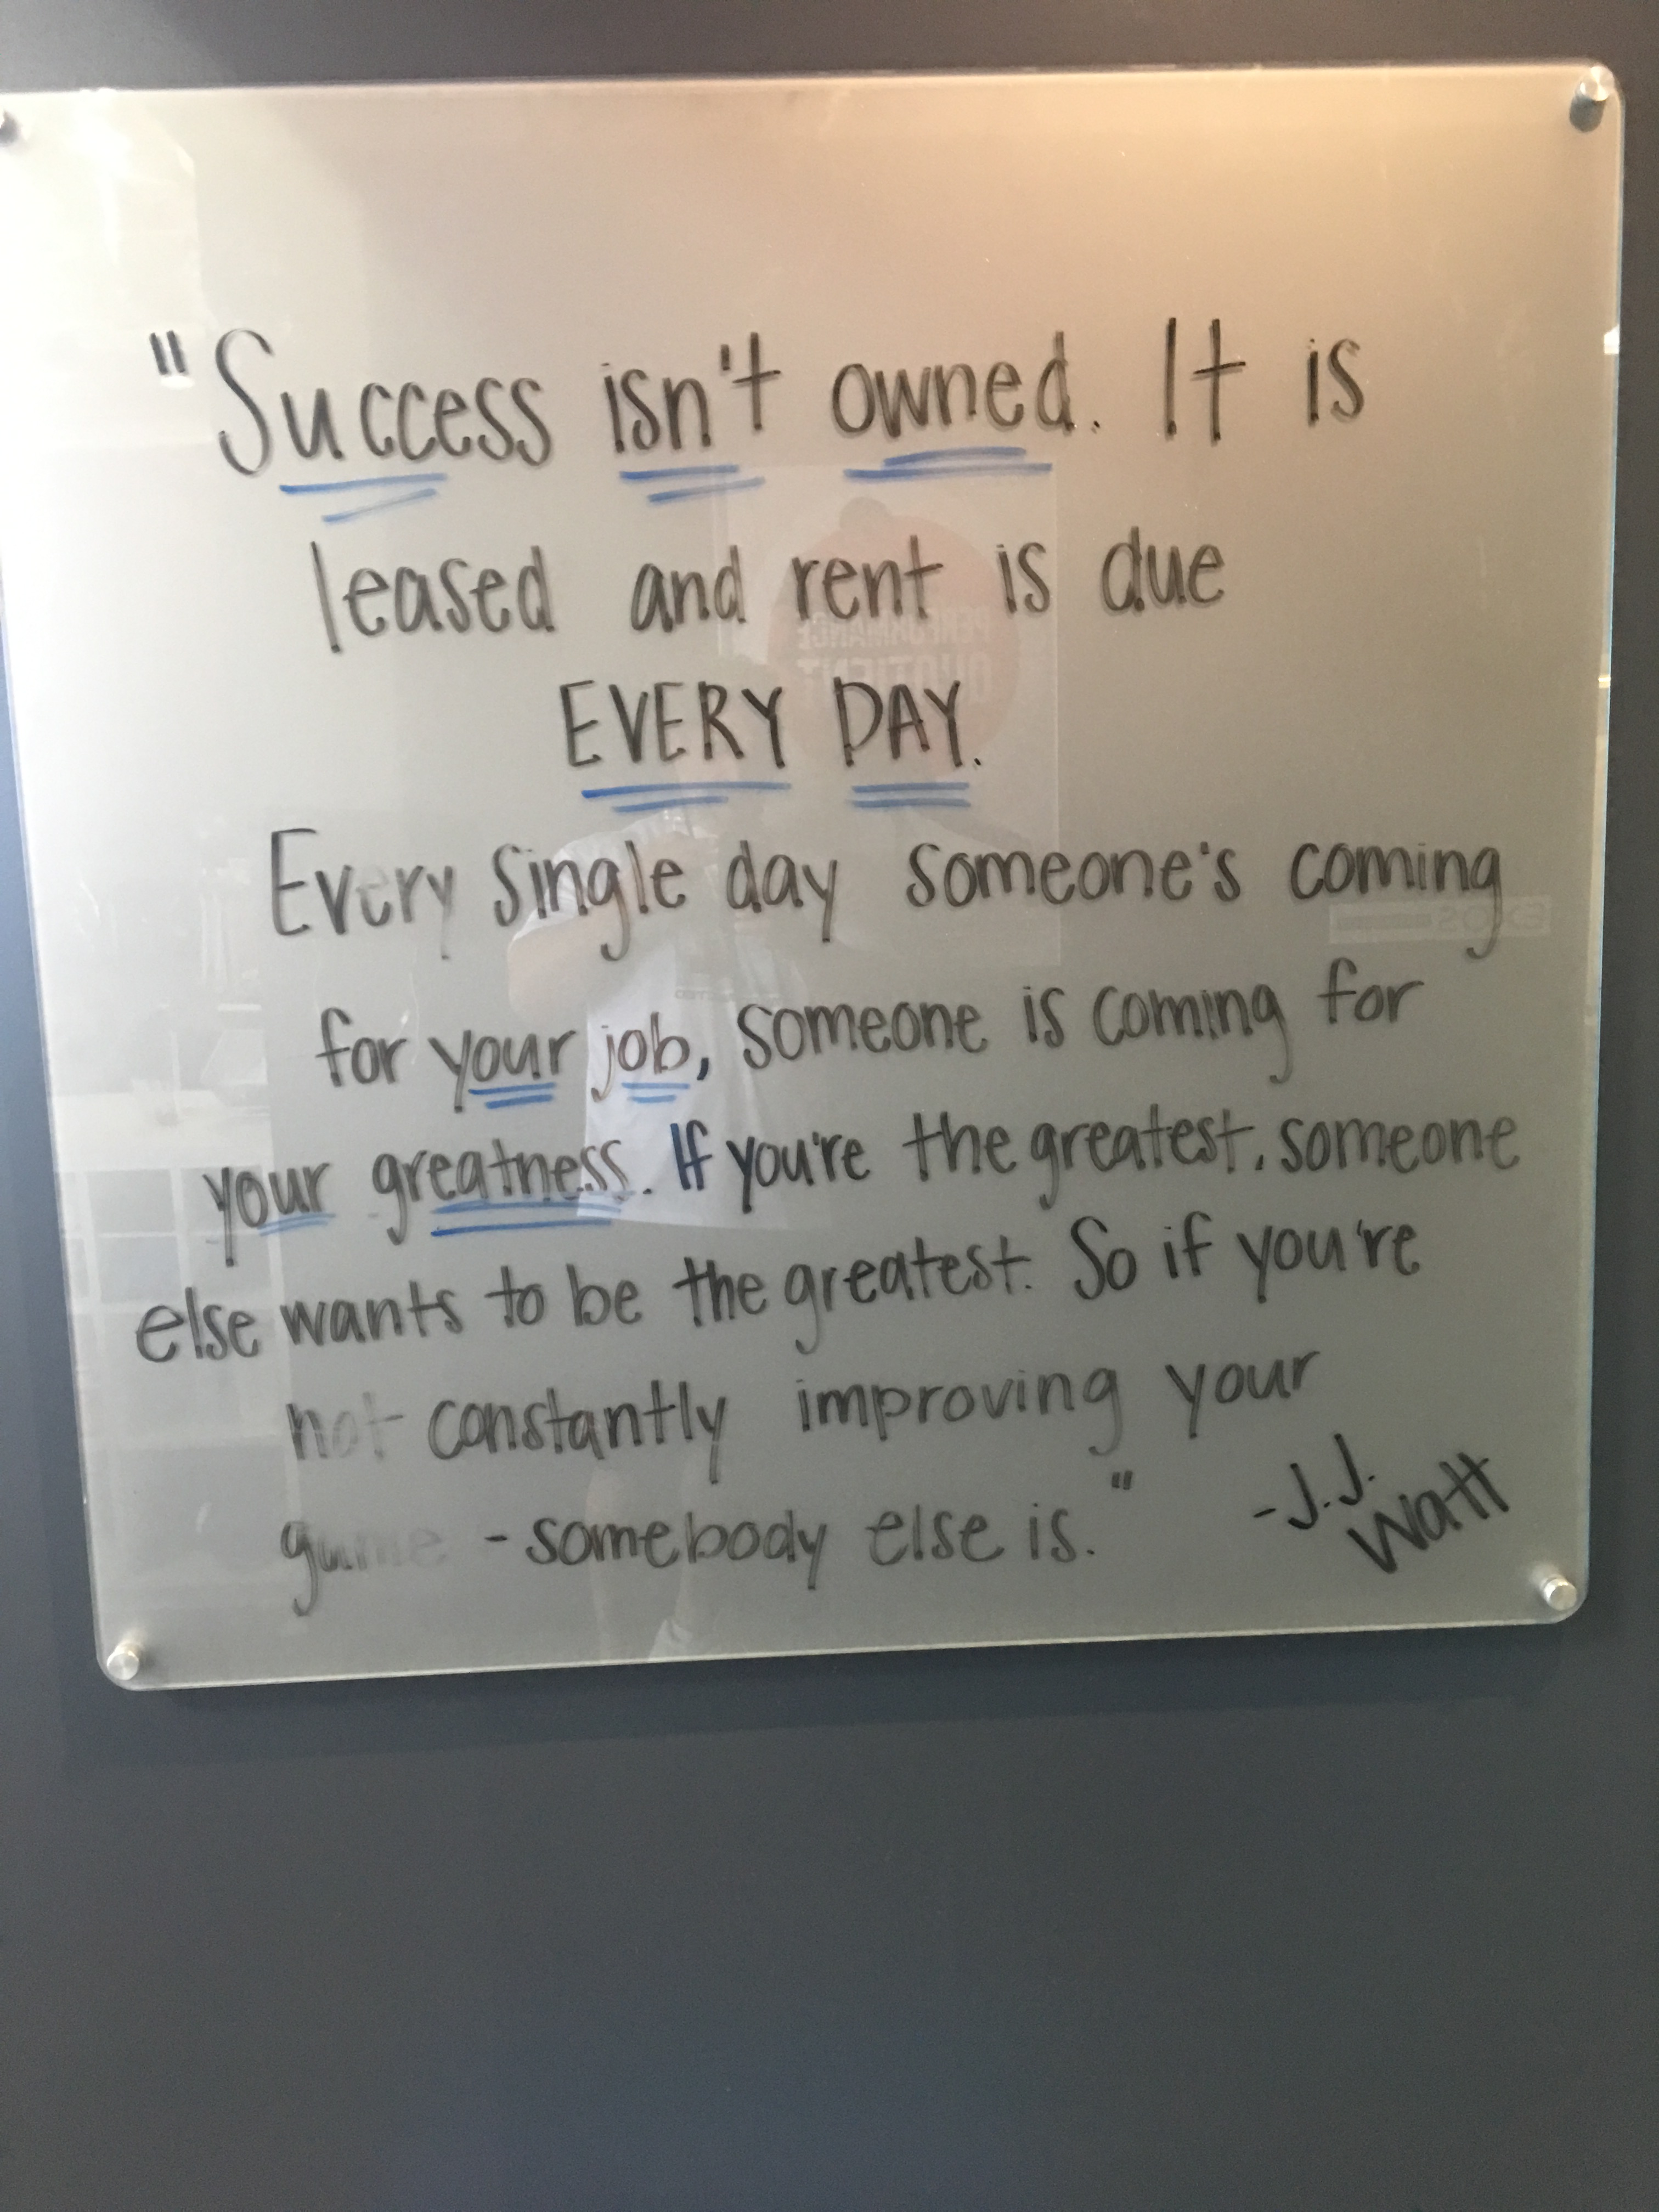 "Success isn't owned. It is
leased and rent is due
EVERY DAY.
Every single day someone's coming
for your job, someone is coming for
your greatness. If you're the greatest, someone
else wants to be the greatest. So if you're
not constantly improving your
game - somebody else is."
-J.J.
Watt
PERFORMANCE
QUOTIENT
EXOS